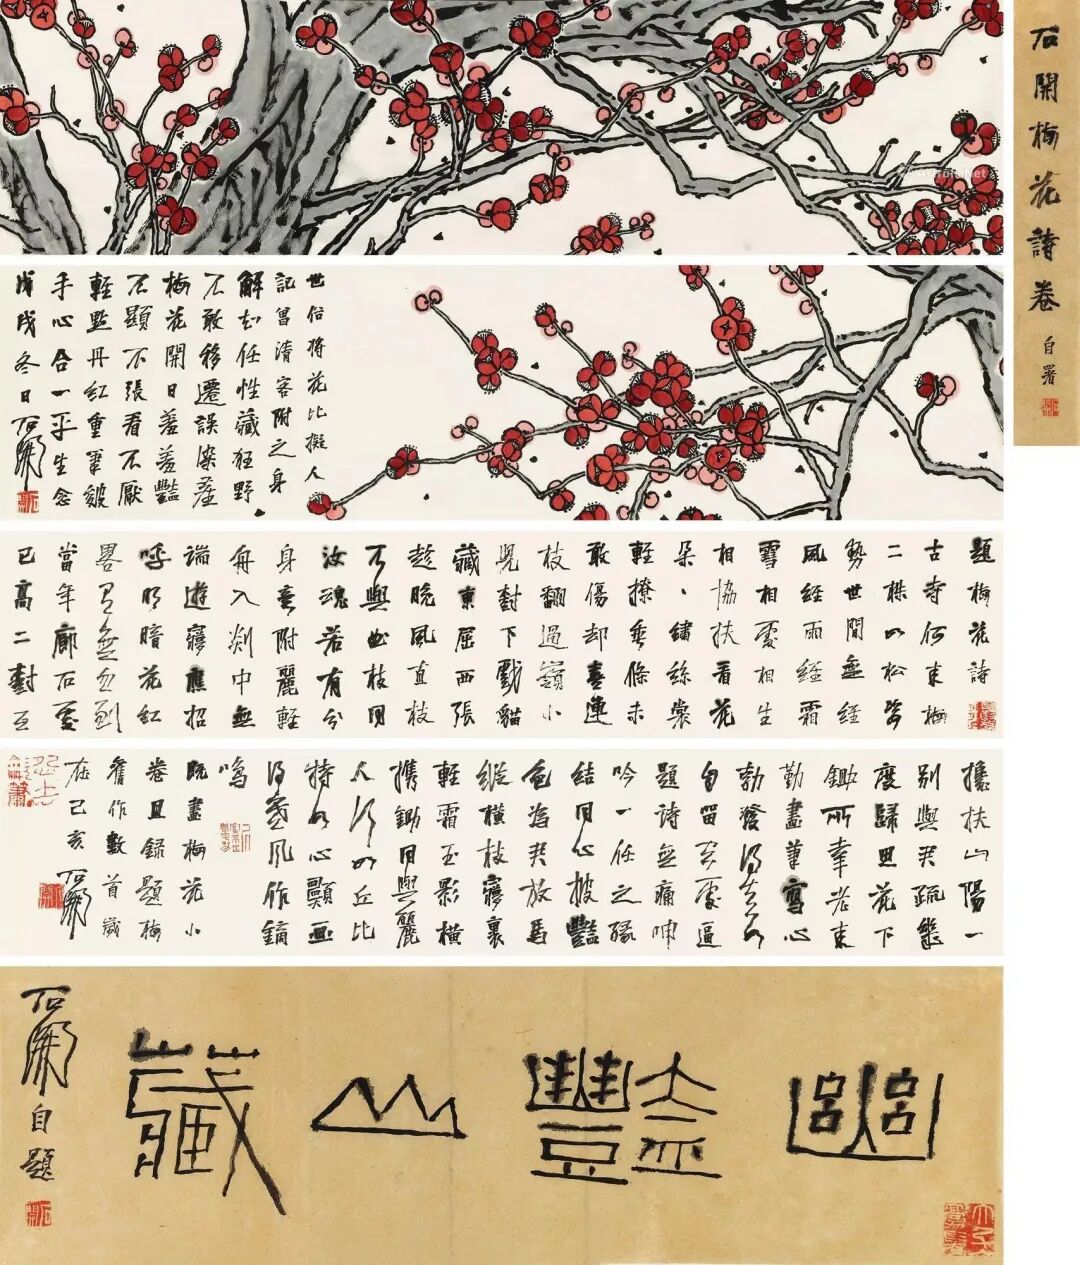 石開梅花詩卷
自署
世俗將花比擬人
記曾清客附之身
解知任性藏狂野
不敢移遷誤染塵
梅花開日羞羞豔
不顯不張看不厭
輕點丹紅重筆皴
手心合一乎生念
戊戌冬日 石開
題梅花詩
古寺何来梅
二株如松
勢世間無經
風經雨經霜
雪相愛相生
相協扶看花
朵、繡絲裳
輕撩垂條未
敢傷却喜連
枝翻過嶺小
兒對下戲貓
藏東屈西張
趁晚風直枝
不與曲枝同
汝魂若有分
身垂附麗輕
舟入剡中無
端遊寢應招
呼明暗花紅
畧有無
當年廊石
已高二樹互
攙扶山陽一
別與君疏幾
度歸思花下
鋤所幸老来
勤畫筆寫心
勃發淂春如
自留處逼
題詩無痛呻
吟一任之緣
結同心披豔
色為君放馬
縱橫枝寢裏
輕霜玉影橫
攜鋤同與麗
人行如丘比
特如心顫画
淂春風作鏑
鳴
既畫梅花小
卷且録題梅
舊作數首歲
在己亥 石開
豳豔山藏
石開自題